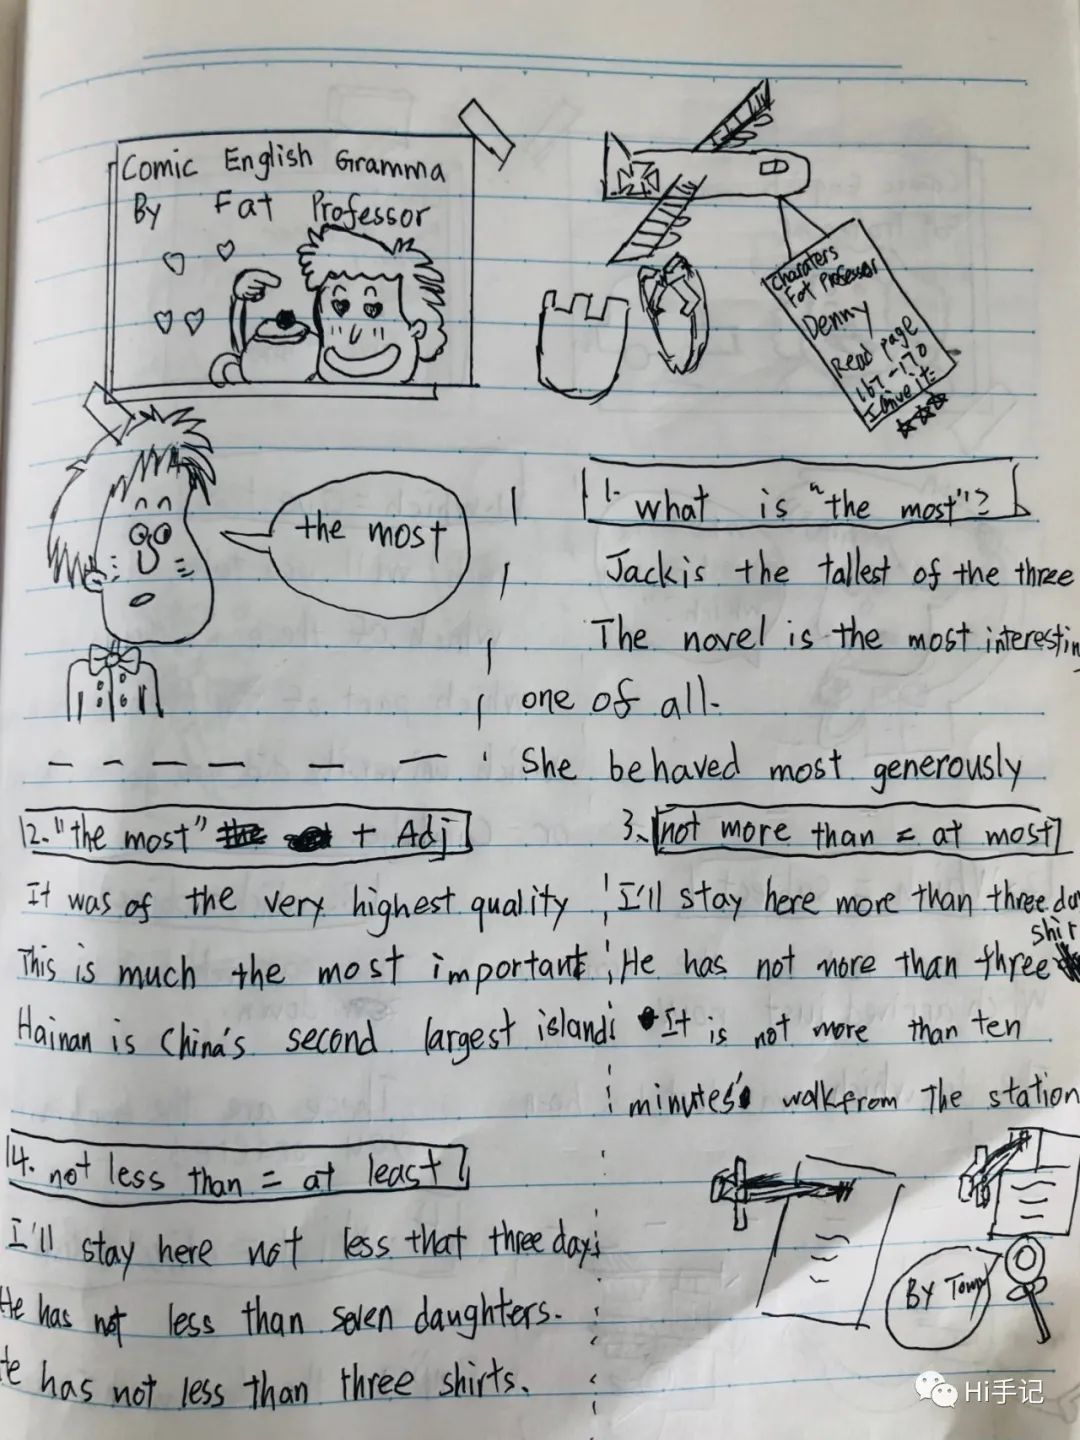 Comic English Gramma
By Fat Professor
Charaters
Fat Professor
Denny
Read page
167-170
I give it:
the most
1. what is "the most"?
Jack is the tallest of the three
The novel is the most interestin
one of all.
She behaved most generously
2. "the most" + Adj
It was of the very highest quality
This is much the most important
Hainan is China's second largest island
3. not more than = at most
I'll stay here more than three da
He has not more than three shir
It is not more than ten
minutes' walk from The station
4. not less than = at least
I'll stay here not less that three days
He has not less than seven daughters.
He has not less than three shirts.
BY Tony
Hi手记